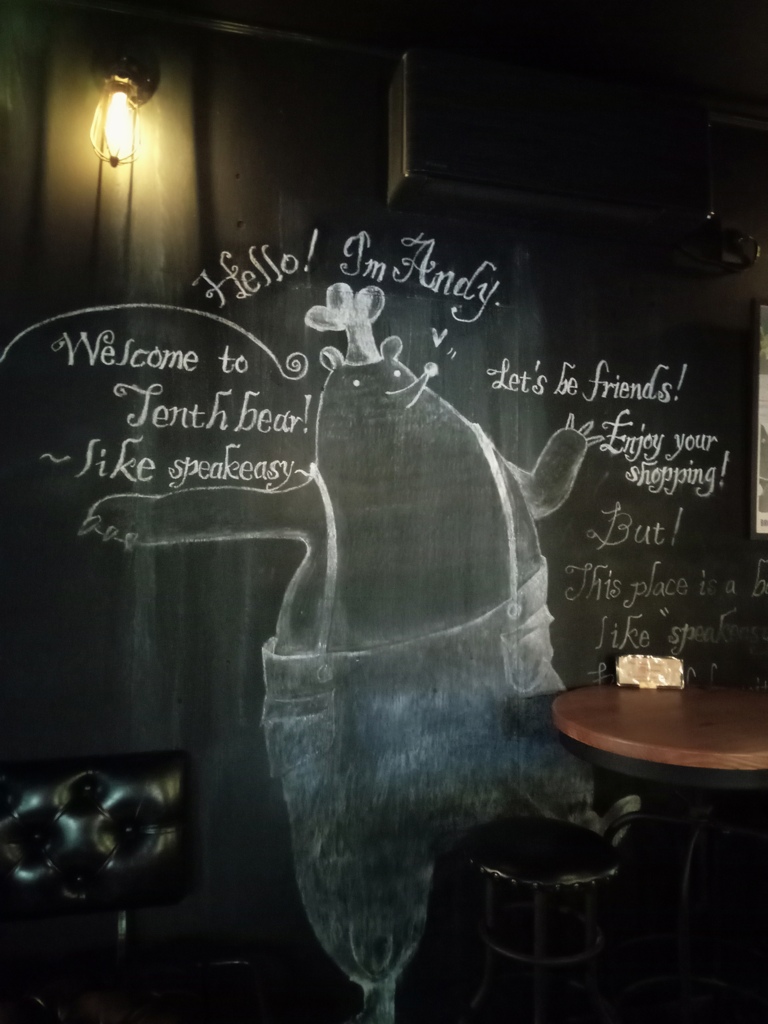 Hello! I'm Andy.
Welcome to
Tenth bear!
~like speakeasy~
Let's be friends!
Enjoy your
shopping!
But!
This place is a
like "speakeasy